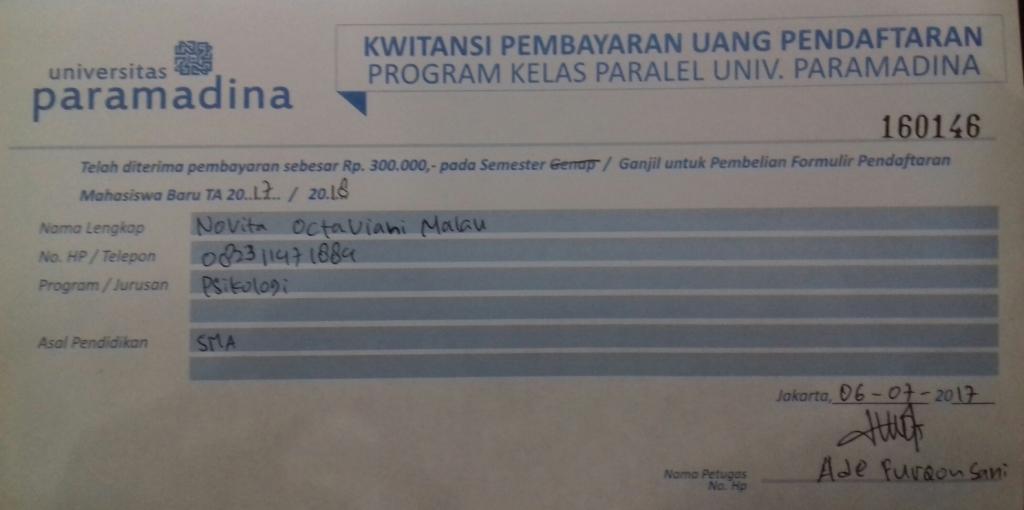 universitas
paramadina
KWITANSI PEMBAYARAN UANG PENDAFTARAN
PROGRAM KELAS PARALEL UNIV. PARAMADINA
160146
Telah diterima pembayaran sebesar Rp. 300.000,- pada Semester Genap / Ganjil untuk Pembelian Formulir Pendaftaran
Mahasiswa Baru TA 20..17.. / 20.18
Nama Lengkap Novita Octaviani Malau
No. HP / Telepon 082311471884
Program / Jurusan Psikologi
Asal Pendidikan SMA
Jakarta, 06-07-2017
Nama Petugas Ade Furqon Sani
No. Hp